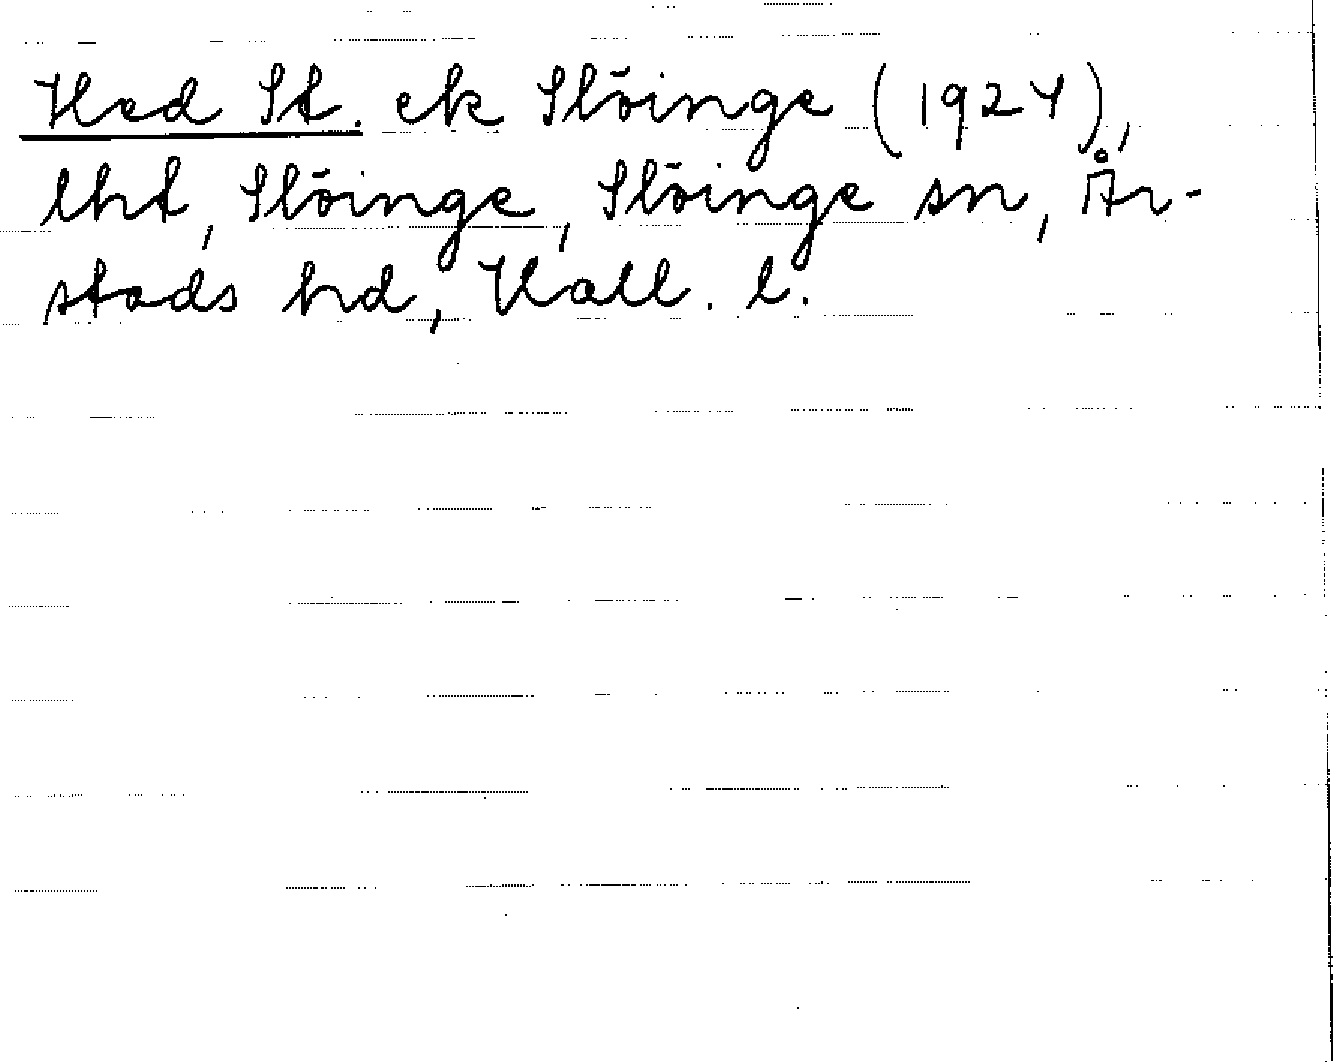 Hed St. ek Slöinge (1924),
lht, Slöinge, Slöinge sn, År-
stads hd, Hall. l.